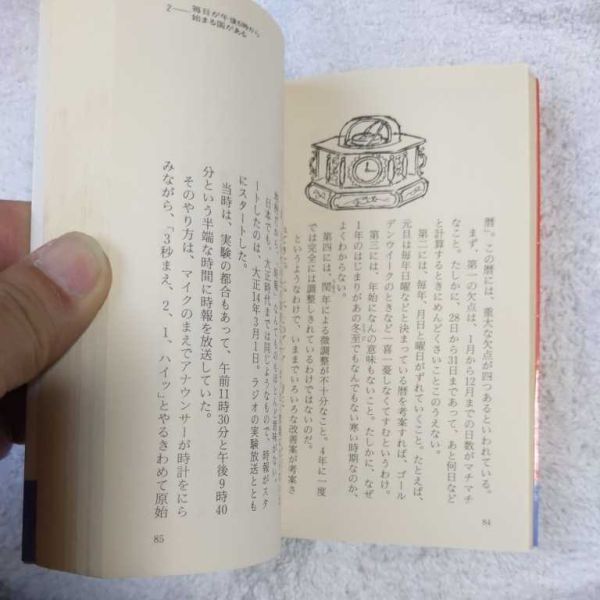 暦〟。この暦には、重大な欠点が四つあるといわれている。
まず、第一の欠点は、1月から12月までの日数がマチマチ
なこと。たしかに、28日から31日まであって、あと何日など
と計算するときにめんどくさいことこのうえない。
第二には、毎年、月日と曜日がずれていくこと。たとえば、
元旦は毎年日曜などと決まっている暦を考案すれば、ゴール
デンウイークのときなど一喜一憂しなくてすむというわけ。
第三には、年始になんの意味もないこと。たしかに、なぜ
1年のはじまりがあの冬至でもなんでもない寒い時期なのか、
よくわからない。
第四には、閏年による微調整が不十分なこと。4年に一度
では完全には調整しきれているわけではないのだ。
というようなわけで、いままでいろいろな改善案が考案さ
84
2——毎日が午後6時から
始まる国がある
日本でも、大正時代までは同じようなもので、時報がスタ
ートしたのは、大正14年3月1日。ラジオの実験放送ととも
にスタートした。
当時は、実験の都合もあって、午前11時30分と午後9時40
分という半端な時間に時報を放送していた。
そのやり方は、マイクのまえでアナウンサーが時計をにら
みながら、「3秒まえ、2、1、ハイッ」とやるきわめて原始
85